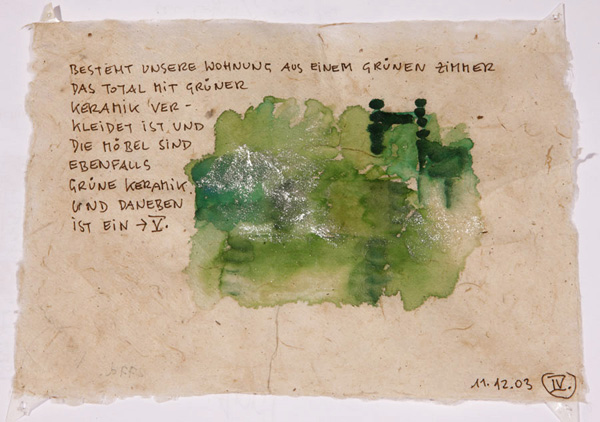 BESTEHT UNSERE WOHNUNG AUS EINEM GRÜNEN ZIMMER
DAS TOTAL MIT GRÜNER
KERAMIK VER-
KLEIDET IST, UND
DIE MÖBEL SIND
EBENFALLS
GRÜNE KERAMIK.
UND DANEBEN
IST EIN → V.
11.12.03 IV.